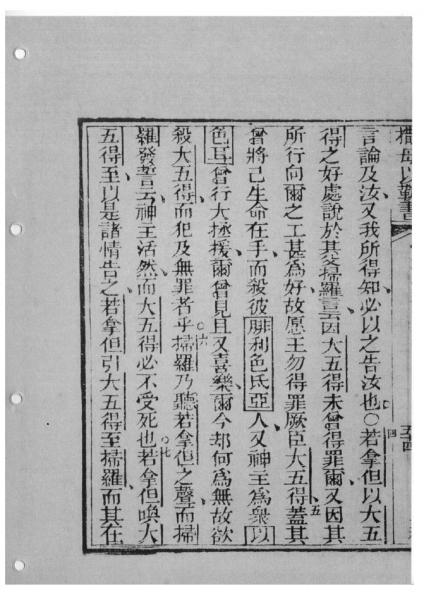 撒母以勒書
五十四
言論及汝又我所得知必以之告汝也○若拿但以大五
四
得之好處說於其父掃羅言云因大五得未曾得罪爾又因其
所行向爾之工甚為好故愿王勿得罪厥臣大五得蓋其
五
曾將己生命在手而殺彼腓利色氏亞人又神主為衆以
色耳曾行大拯援爾曾見且又喜樂爾今却何為無故欲
殺大五得而犯及無罪者乎○掃羅乃聽若拿但之聲而掃
六
羅發誓云神主活然而大五得必不受死也○若拿但喚大
七
五得至以是諸情告之若拿但引大五得至掃羅而其在